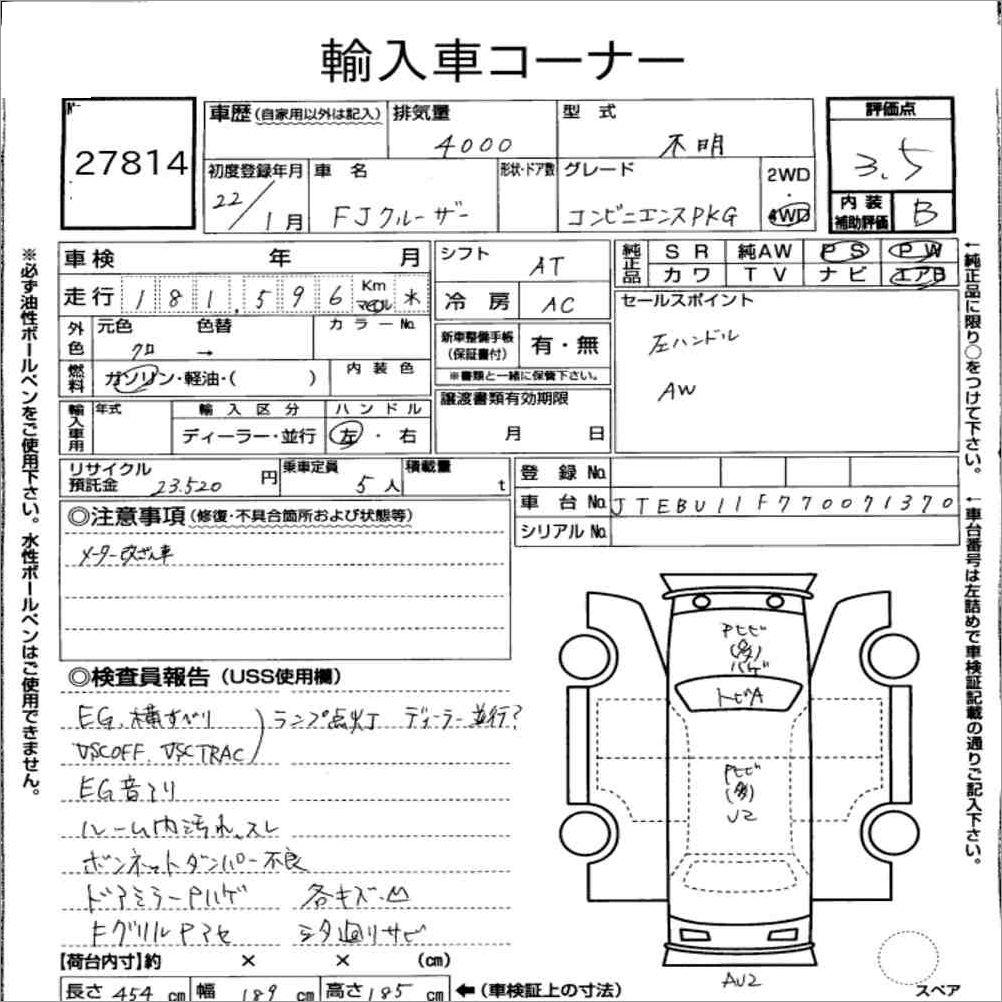 輸入車コーナー
№
27814
車歴 (自家用以外は記入)
排気量
4000
型式
不明
評価点
3.5
初度登録年月
22/1月
車名
FJクルーザー
形状・ドア数
グレード
コンビニエンスPKG
2WD
・
4WD
内装
補助評価
B
車検 年 月
走行 181,596 Km マイル 木
外色
元色
クロ
色替
→
カラーNo.
燃料
ガソリン・軽油・( )
内装色
輸入車用
年式
輸入区分
ディーラー・並行
ハンドル
左・右
シフト
AT
冷房
AC
新車整備手帳
(保証書付)
有・無
※書類と一緒に保管下さい。
譲渡書類有効期限
月 日
純正品
SR 純AW PS PW
カワ TV ナビ エアB
セールスポイント
左ハンドル
AW
リサイクル
預託金
23.520 円
乗車定員
5人
積載量
t
登録No.
車台No. JTEBU11F770071370
シリアルNo.
◎注意事項 (修復・不具合箇所および状態等)
メーター改ざん車
◎検査員報告 (USS使用欄)
EG、横すべり
VSCOFF. VSCTRAC
ランプ点灯 ディーラー並行?
EG音アリ
ルーム内汚れ、スレ
ボンネットダンパー不良
ドアミラーPハゲ 各キズ、凹
FグリルPアセ シタ廻リサビ
【荷台内寸】約 × × (cm)
長さ 454 cm 幅 189 cm 高さ 185 cm ←(車検証上の寸法)
Pヒビ
(多)
ハゲ
トビA
Pヒビ
(多)
U2
AU2
スペア
※必ず油性ボールペンをご使用下さい。水性ボールペンはご使用できません。
←純正品に限り○をつけて下さい。
←車台番号は左詰めで車検証記載の通りご記入下さい。